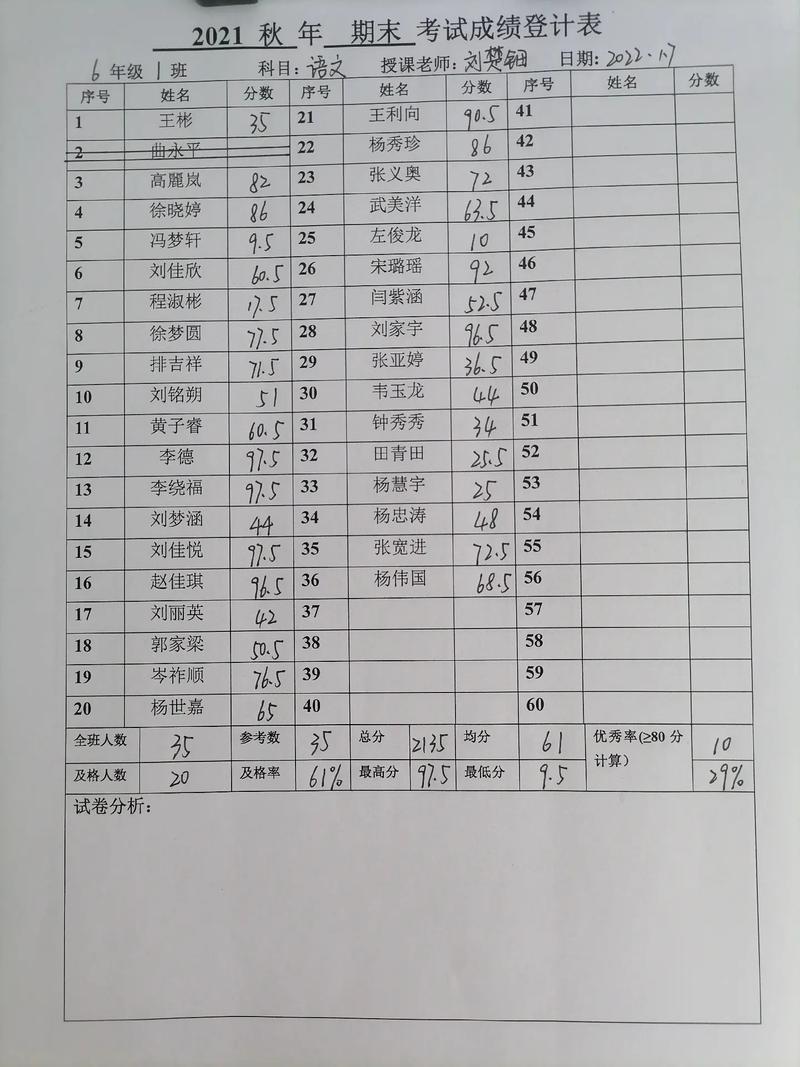 2021 秋 年 期末 考试成绩登计表
6 年级 1 班 科目：语文 授课老师：刘楚钿 日期：2022.1.7
序号 姓名 分数 序号 姓名 分数 序号 姓名 分数
1 王彬 35 21 王利向 90.5 41
2 曲永平 22 杨秀珍 86 42
3 高麗岚 82 23 张义奥 72 43
4 徐晓婷 86 24 武美洋 63.5 44
5 冯梦轩 9.5 25 左俊龙 10 45
6 刘佳欣 60.5 26 宋璐瑶 92 46
7 程淑彬 17.5 27 闫紫涵 52.5 47
8 徐梦圆 77.5 28 刘家宇 96.5 48
9 排吉祥 71.5 29 张亚婷 36.5 49
10 刘铭朔 51 30 韦玉龙 44 50
11 黄子睿 60.5 31 钟秀秀 34 51
12 李德 97.5 32 田青田 25.5 52
13 李绕福 97.5 33 杨慧宇 25 53
14 刘梦涵 44 34 杨忠涛 48 54
15 刘佳悦 97.5 35 张宽进 72.5 55
16 赵佳琪 96.5 36 杨伟国 68.5 56
17 刘丽英 42 37 57
18 郭家梁 50.5 38 58
19 岑祚顺 76.5 39 59
20 杨世嘉 65 40 60
全班人数 35 参考数 35 总分 2135 均分 61 优秀率(≥80 分 10
及格人数 20 及格率 61% 最高分 97.5 最低分 9.5 计算） 29%
试卷分析：